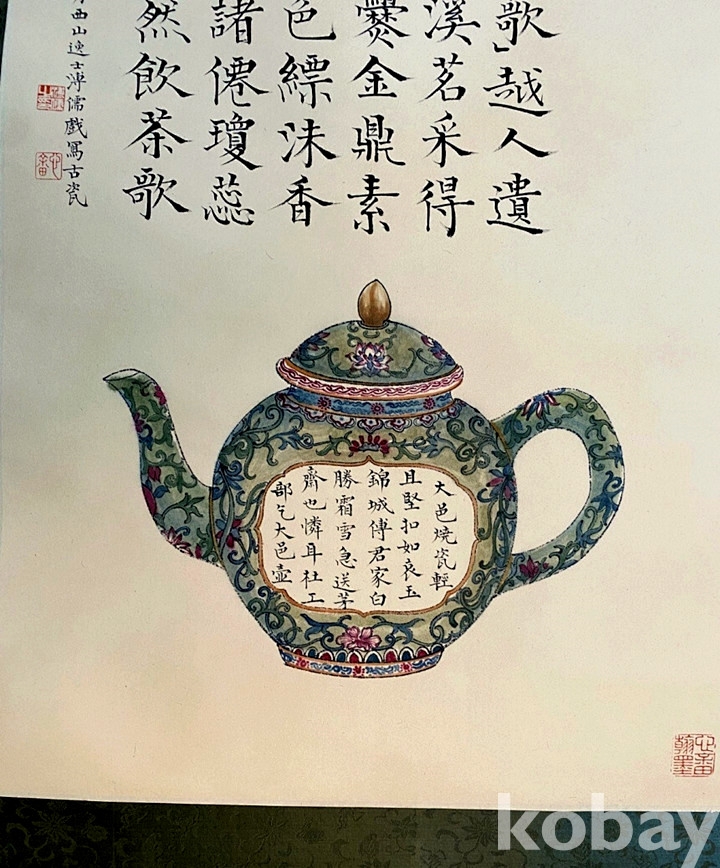 歌」越人遺
溪茗采得
爨金鼎素
色縹沫香
諸僊瓊蕊
然飲茶歌
西山逸士溥儒戲寫古瓷
心畬
大邑燒瓷輕
且堅扣如哀玉
錦城傳君家白
勝霜雪急送茅
齋也憐耳杜工
部乞大邑壺
心畬翰墨
kobay